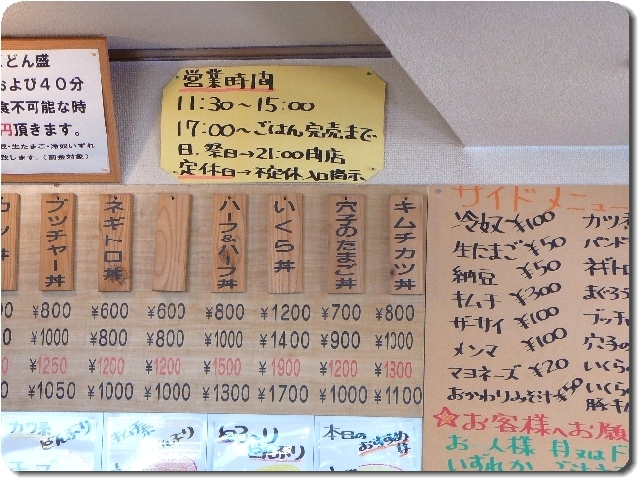 どん盛
および４０分
食不可能な時
円頂きます。
豆・生たまご・冷奴いずれ
致します。(前金対象)
営業時間
11:30～15:00
17:00～ごはん完売まで
日、祭日→21:00閉店
定休日→不定休入口掲示
ブッチャー丼
ネギトロ丼
ハーフ&ハーフ丼
いくら丼
穴子のたまご丼
キムチカツ丼
¥800 ¥600 ¥600 ¥800 ¥1200 ¥700 ¥800
¥1000 ¥800 ¥800 ¥1000 ¥1400 ¥900 ¥1000
¥1250 ¥1200 ¥1200 ¥1500 ¥1900 ¥1200 ¥1300
¥1050 ¥1000 ¥1000 ¥1300 ¥1700 ¥1000 ¥1100
サイドメニュー
冷奴 ¥100
生たまご ¥50
納豆 ¥50
キムチ ¥300
ザーサイ ¥100
メンマ ¥100
マヨネーズ ¥20
おかわりみそ汁
カツ
バンド
ネギト
まぐろ
ブッチ
穴子の
いくら
いくら
豚キム
☆お客様へお願
お人様 丼又は
いずれか
カツ系
どんぶり
キムチ系
どんぶり
本日のおすすめは